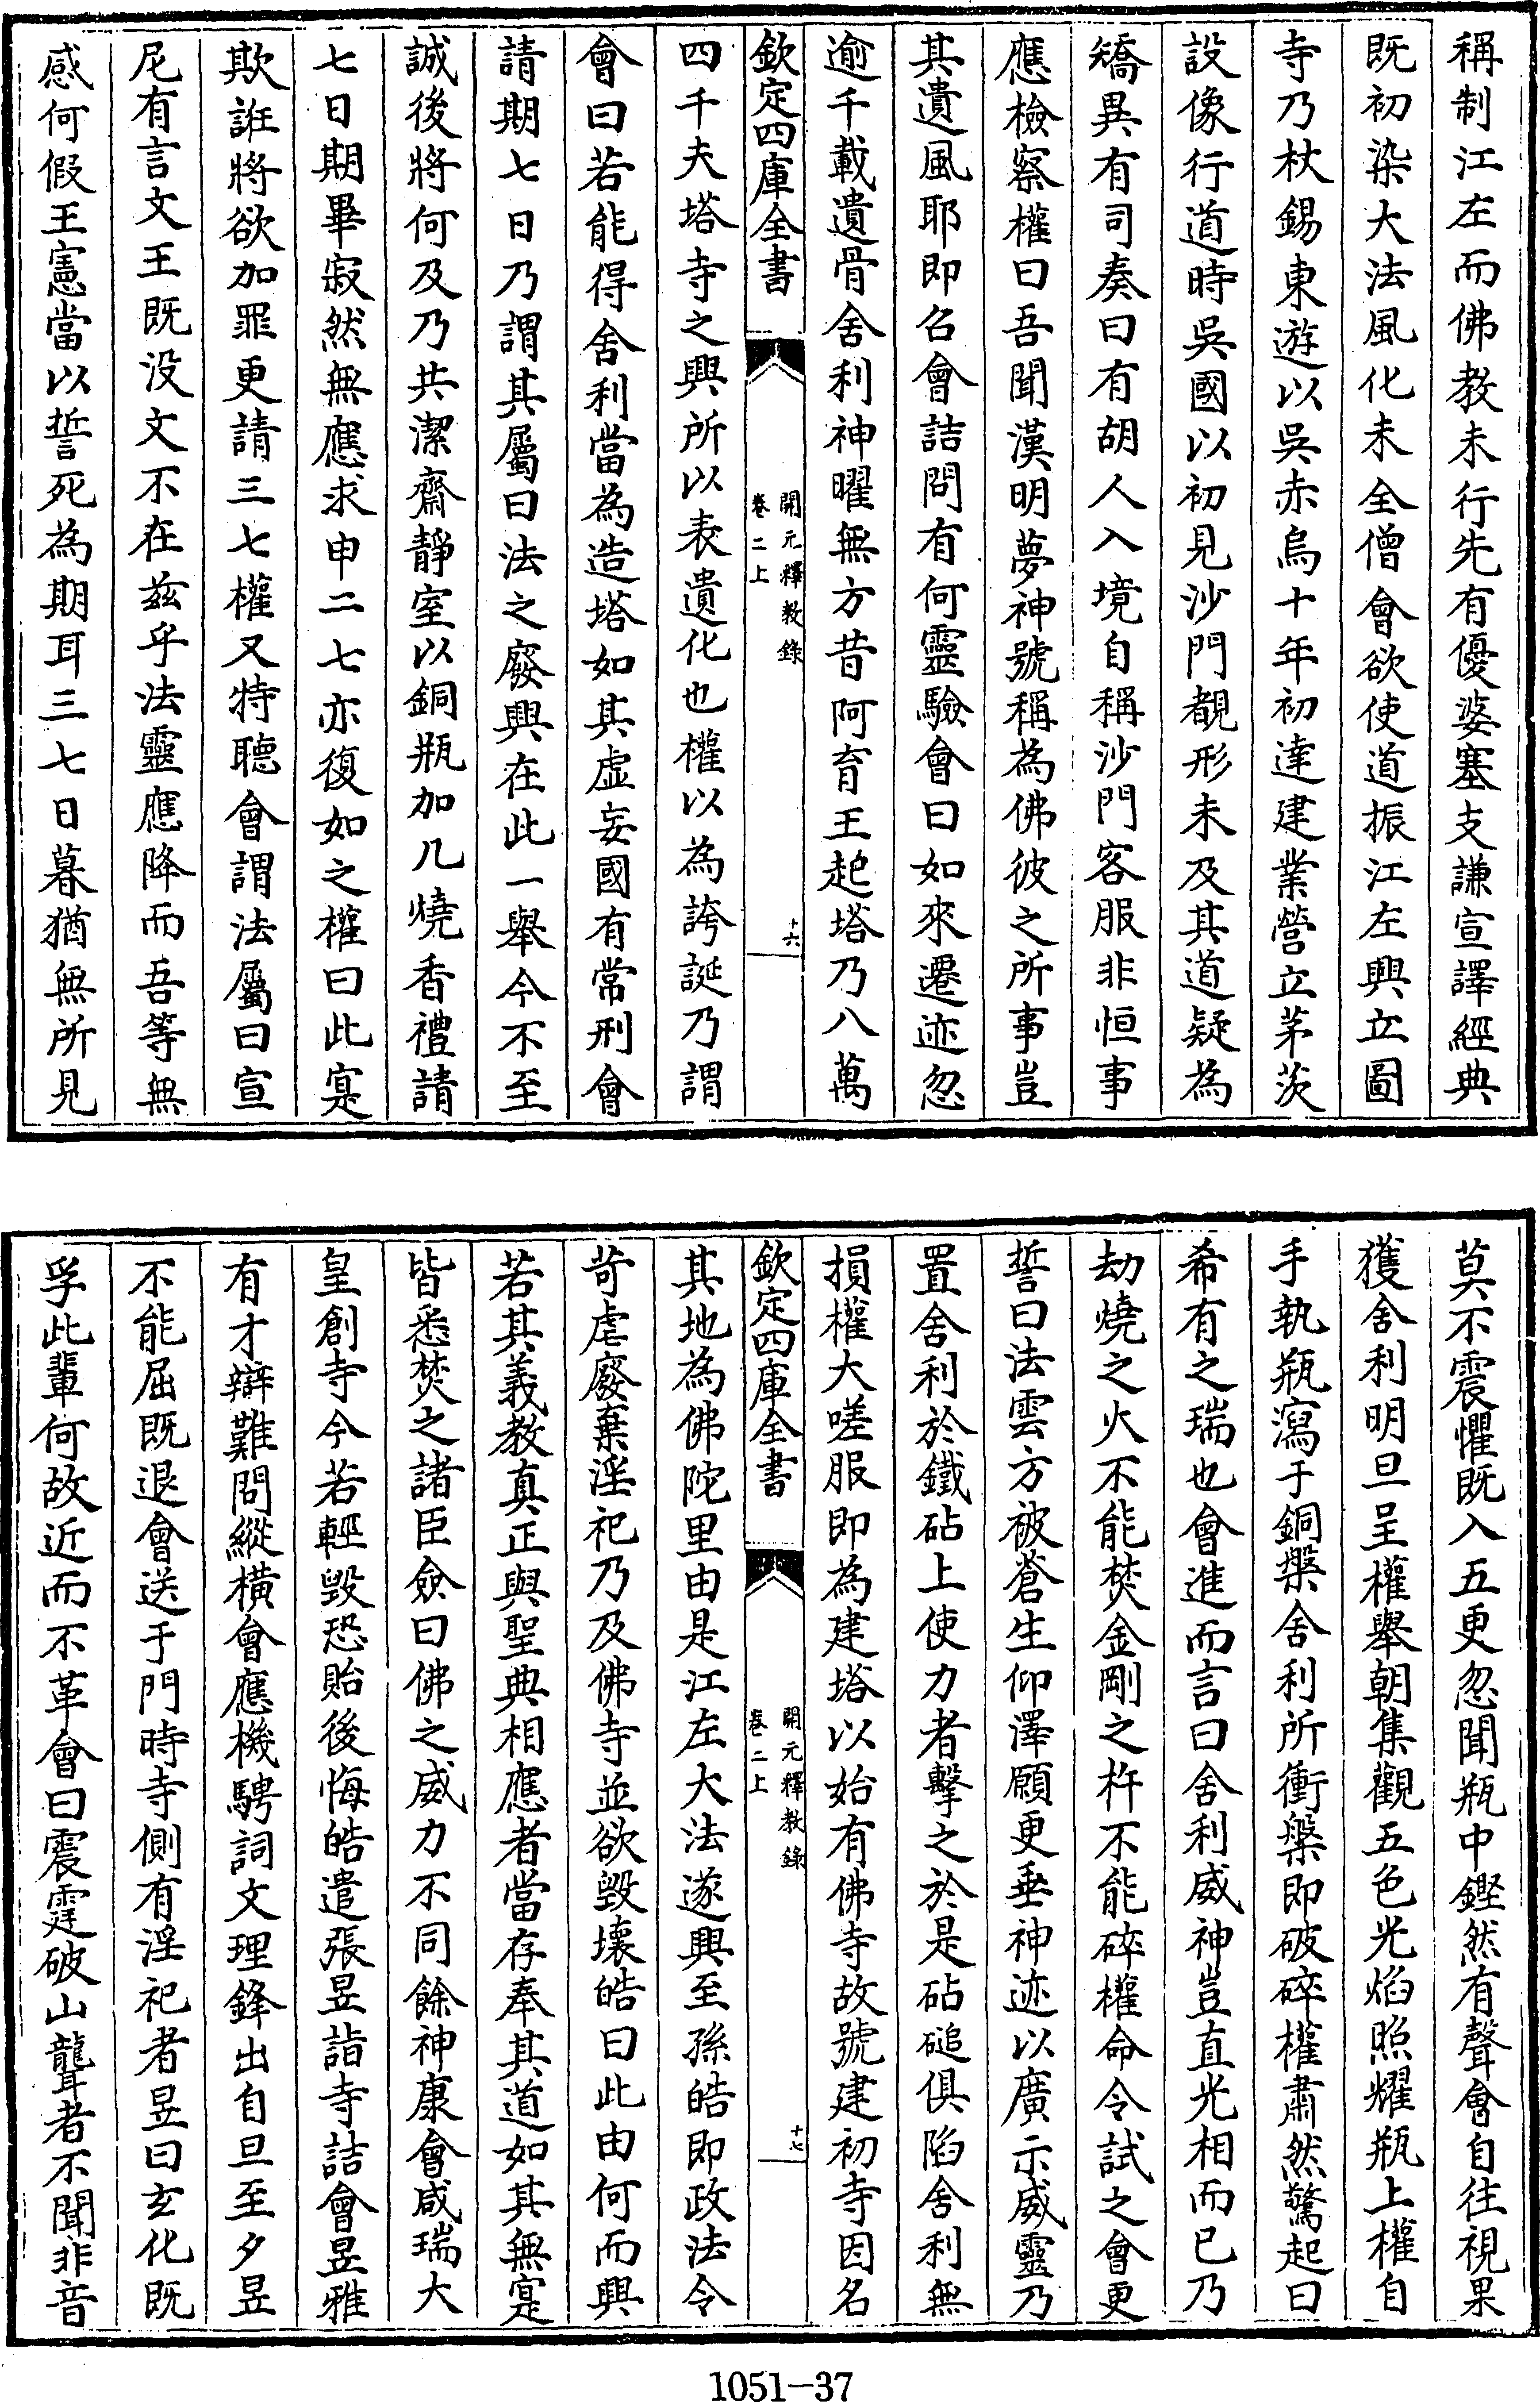 稱制江左而佛教未行先有優婆塞支謙宣譯經典
既初染大法風化未全僧會欲使道振江左興立圖
寺乃杖錫東遊以吳赤烏十年初達建業營立茅茨
設像行道時吳國以初見沙門覩形未及其道疑為
矯異有司奏曰有胡人入境自稱沙門容服非恒事
應檢察權曰吾聞漢明夢神號稱為佛彼之所事豈
其遺風耶即召會詰問有何靈驗會曰如來遷迹忽
逾千載遺骨舍利神曜無方昔阿育王起塔乃八萬
欽定四庫全書
開元釋教錄
卷二上
十六
四千夫塔寺之興所以表遺化也權以為誇誕乃謂
會曰若能得舍利當為造塔如其虛妄國有常刑會
請期七日乃謂其屬曰法之廢興在此一舉今不至
誠後將何及乃共潔齋靜室以銅瓶加几燒香禮請
七日期畢寂然無應求申二七亦復如之權曰此寔
欺誑將欲加罪更請三七權又特聽會謂法屬曰宣
尼有言文王既没文不在兹乎法靈應降而吾等無
感何假王憲當以誓死為期耳三七日暮猶無所見
莫不震懼既入五更忽聞瓶中鏗然有聲會自往視果
獲舍利明旦呈權舉朝集觀五色光焰照耀瓶上權自
手執瓶瀉于銅槃舍利所衝槃即破碎權肅然驚起曰
希有之瑞也會進而言曰舍利威神豈直光相而已乃
劫燒之火不能焚金剛之杵不能碎權命令試之會更
誓曰法雲方被蒼生仰澤願更垂神迹以廣示威靈乃
置舍利於鐵砧上使力者擊之於是砧磓俱陷舍利無
損權大嗟服即為建塔以始有佛寺故號建初寺因名
欽定四庫全書
開元釋教錄
卷二上
十七
其地為佛陀里由是江左大法遂興至孫皓即政法令
苛虐廢棄淫祀乃及佛寺並欲毀壞皓曰此由何而興
若其義教真正與聖典相應者當存奉其道如其無寔
皆悉焚之諸臣僉曰佛之威力不同餘神康會感瑞大
皇創寺今若輕毀恐貽後悔皓遣張昱詣寺詰會昱雅
有才辯難問縱橫會應機騁詞文理鋒出自旦至夕昱
不能屈既退會送于門時寺側有淫祀者昱曰玄化既
孚此輩何故近而不革會曰震霆破山聾者不聞非音
1051-37